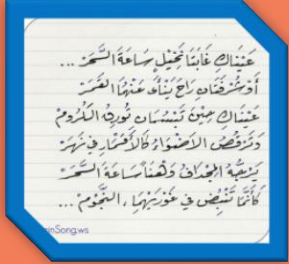 عَيْنَاكِ غَابَتَا نَخِيلٍ سَاعَةَ السَّحَرْ ...
أَوْ شُرْفَتَانِ رَاحَ يَنْأَى عَنْهُمَا القَمَرْ
عَيْنَاكِ حِينَ تَبْسُمَانِ تُورِقُ الكُرُومْ
وَتَرْقُصُ الأَضْوَاءُ كَالأَقْمَارِ فِي نَهَرْ
يَرُجُّهُ المِجْدَافُ وَهْنًا سَاعَةَ السَّحَرْ
كَأَنَّمَا تَنْبُضُ فِي غَوْرَيْهِمَا، النُّجُومْ ...
inSong.ws